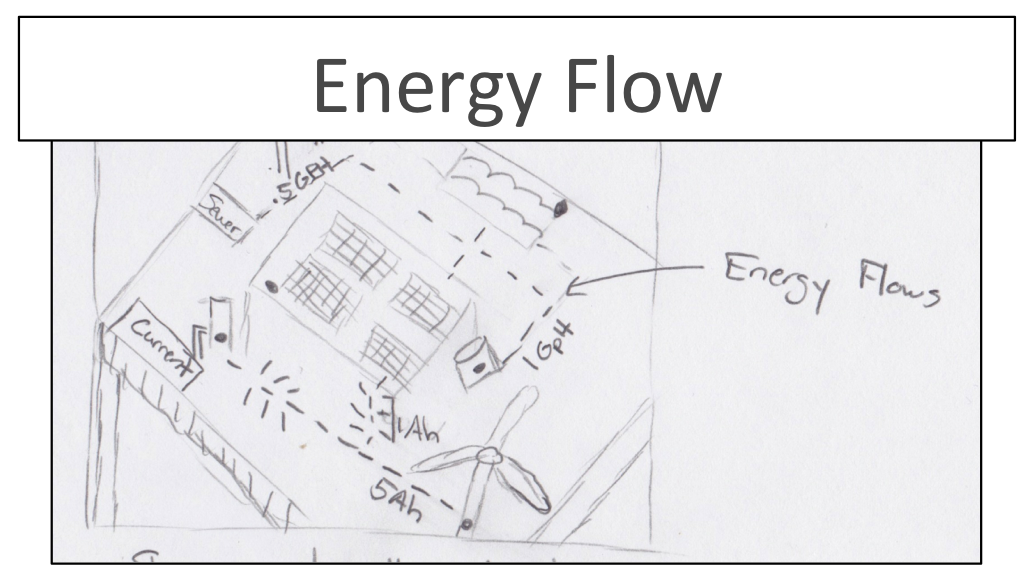 Energy Flow
.5GPH
Sewer
Energy Flows
Current
1GpH
1Ah
5Ah